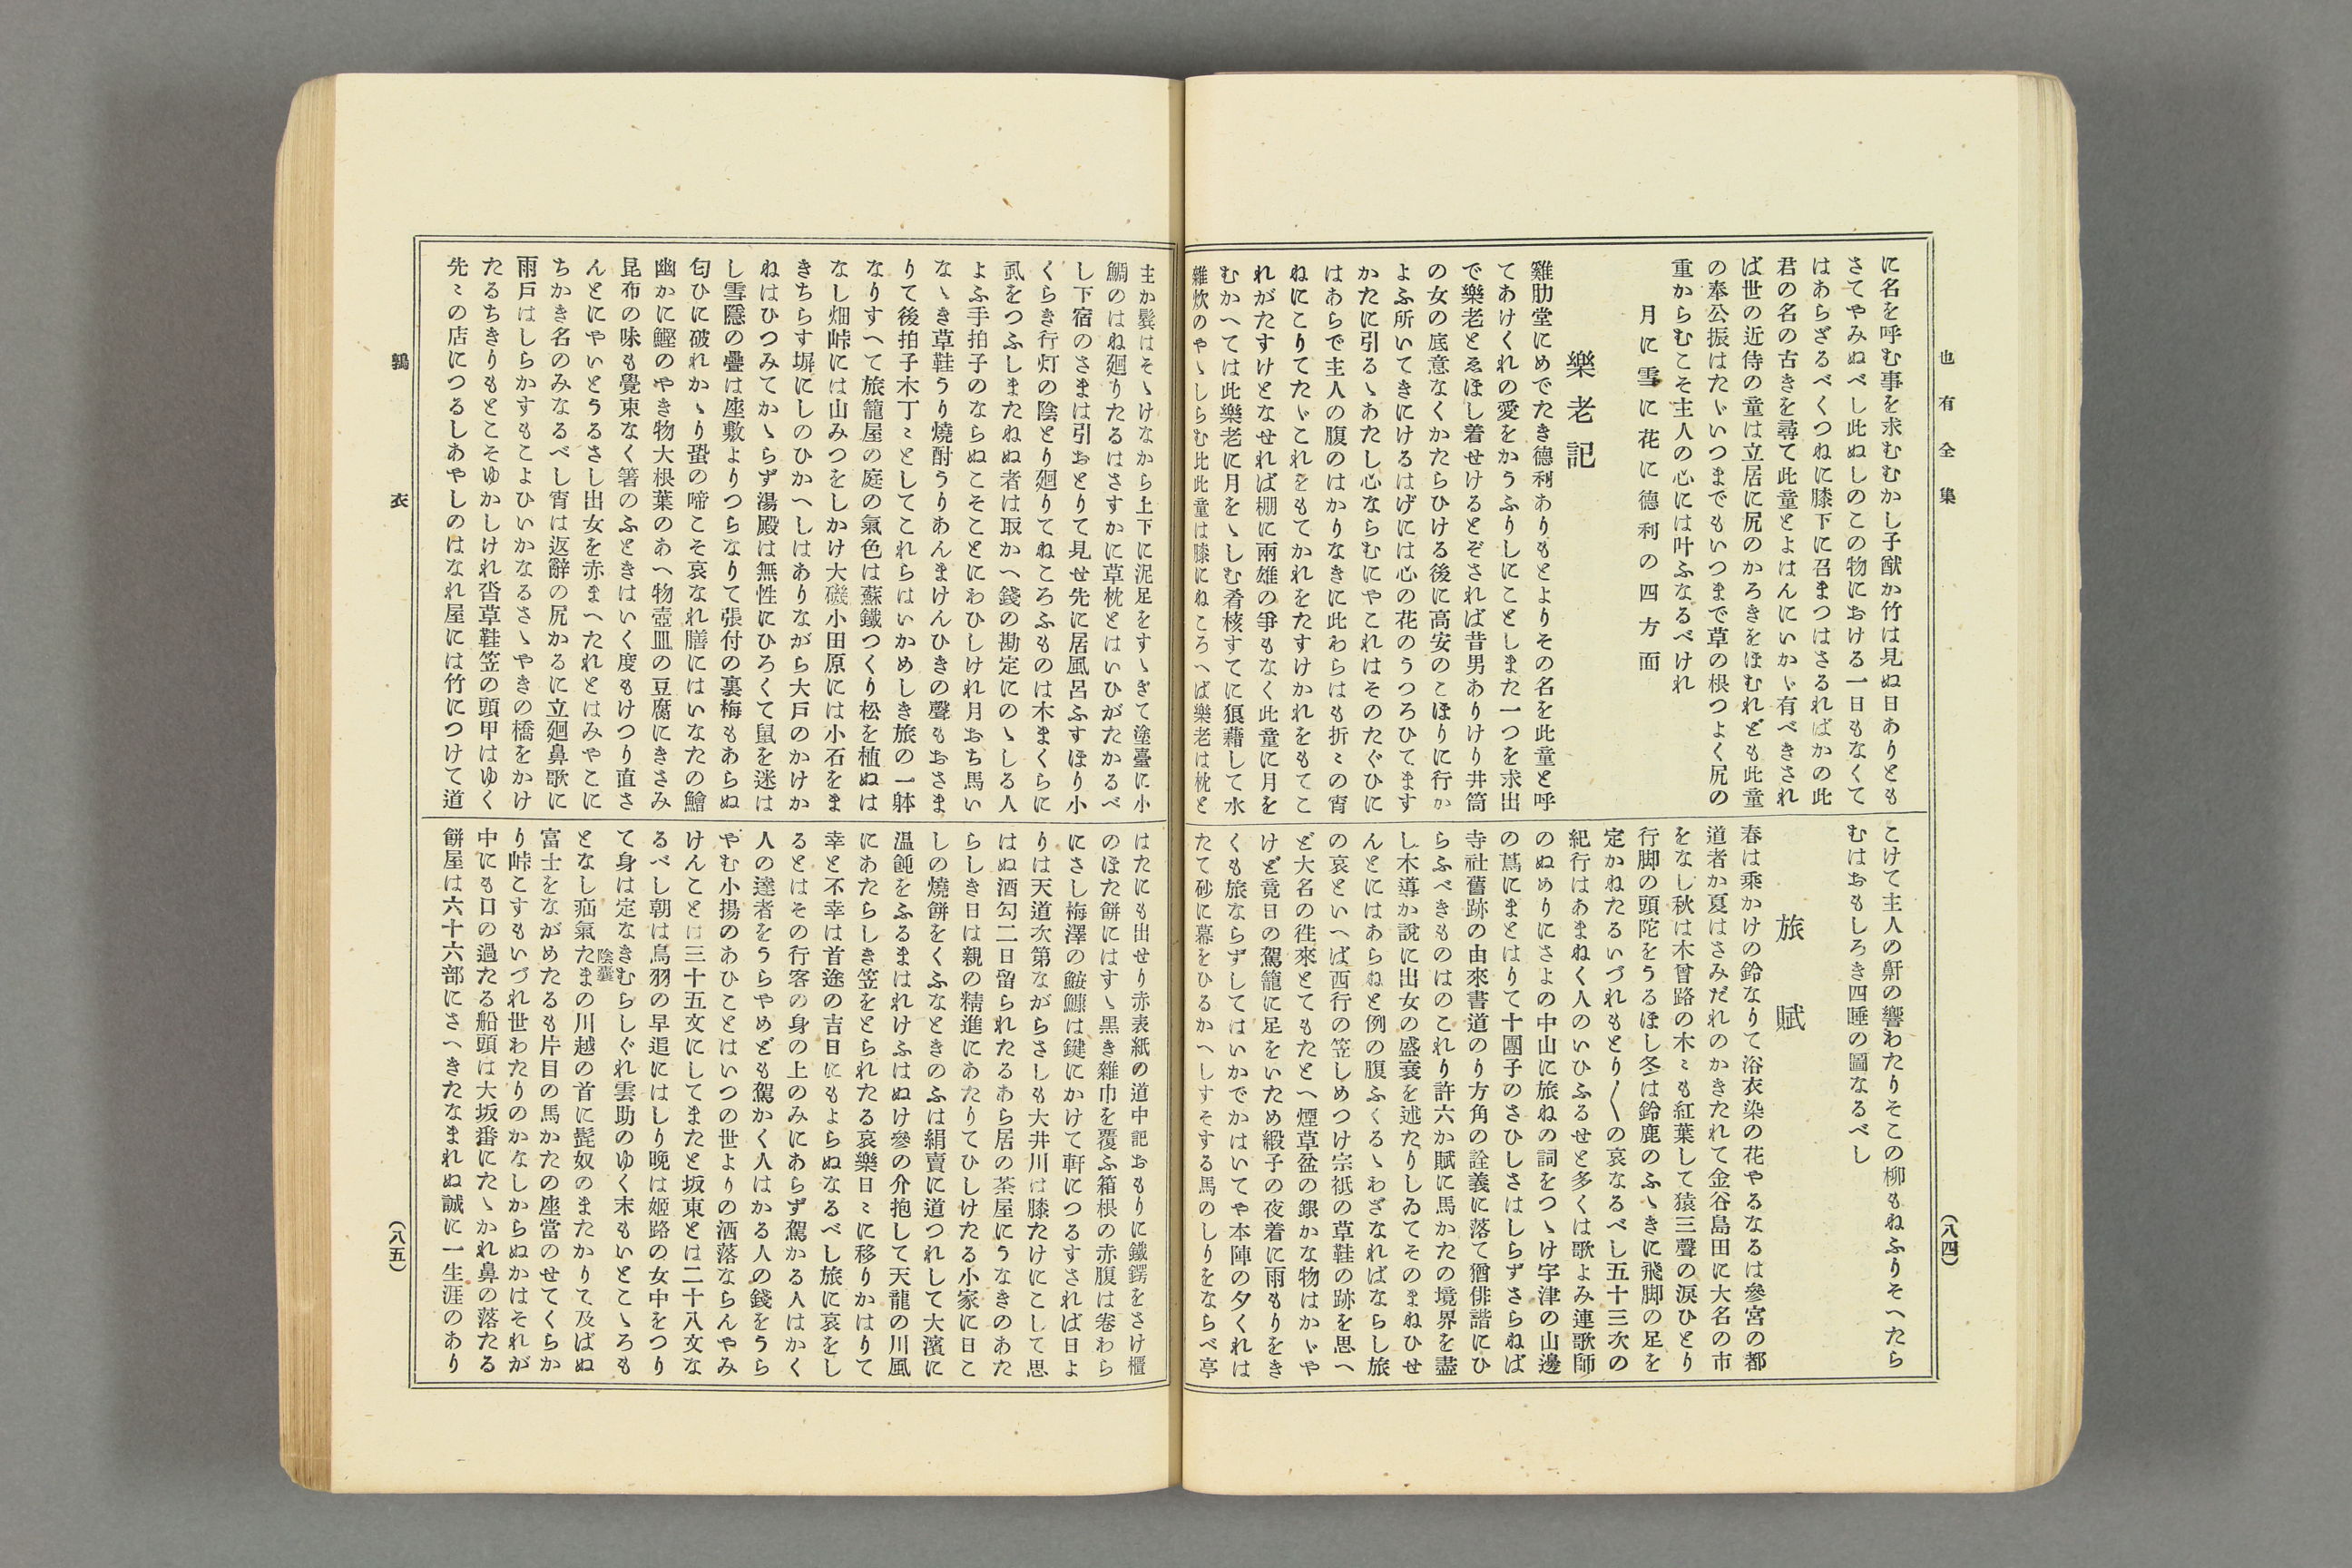 也有全集
(八四)
に名を呼む事を求むむかし子猷か竹は見ぬ日ありとも
さてやみぬべし此ぬしのこの物における一日もなくて
はあらざるべくつねに膝下に召まつはさるればかの此
君の名の古きを尋て此童とよはんにいかゞ有べきされ
ば世の近侍の童は立居に尻のかろきをほむれども此童
の奉公振はたゞいつまでもいつまで草の根つよく尻の
重からむこそ主人の心には叶ふなるべけれ
月に雪に花に德利の四方面
樂老記
雞肋堂にめでたき德利ありもとよりその名を此童と呼
てあけくれの愛をかうふりしにことしまた一つを求出
で樂老とゑほし着せけるとぞされば昔男ありけり井筒
の女の底意なくかたらひける後に高安のこほりに行か
よふ所いてきにけるはげには心の花のうつろひてます
かたに引るゝあたし心ならむにやこれはそのたぐひに
はあらで主人の腹のはかりなきに此わらはも折〻の宵
ねにこりてたゞこれをもてかれをたすけかれをもてこ
れがたすけとなせれば棚に兩雄の爭もなく此童に月を
むかへては此樂老に月をゝしむ肴核すてに狼藉して水
雜炊のやゝしらむ比此童は膝にねころへば樂老は枕と
こけて主人の鼾の響わたりそこの柳もねふりそへたら
むはおもしろき四睡の圖なるべし
旅賦
春は乘かけの鈴なりて浴衣染の花やるなるは參宮の都
道者か夏はさみだれのかきたれて金谷島田に大名の市
をなし秋は木曾路の木〻も紅葉して猿三聲の淚ひとり
行脚の頭陀をうるほし冬は鈴鹿のふゝきに飛脚の足を
定かねたるいづれもとり〱の哀なるべし五十三次の
紀行はあまねく人のいひふるせと多くは歌よみ連歌師
のぬめりにさよの中山に旅ねの詞をつゝけ宇津の山邊
の蔦にまとはりて十團子のさひしさはしらずさらねば
寺社舊跡の由來書道のり方角の詮義に落て猶俳諧にひ
らふべきものはのこれり許六か賦に馬かたの境界を盡
し木導か說に出女の盛衰を述たりしゐてそのまねひせ
んとにはあらねと例の腹ふくるゝわざなればならし旅
の哀といへば西行の笠しめつけ宗祇の草鞋の跡を思へ
ど大名の徃來とてもたとへ煙草盆の銀かな物はかゞや
けど竟日の駕籠に足をいため緞子の夜着に雨もりをき
くも旅ならずしてはいかでかはいてや本陣の夕くれは
たて砂に幕をひるかへしすそする馬のしりをならべ亭
主か鬂はそゝけなから上下に泥足をすゝぎて塗臺に小
鯛のはね廻りたるはさすかに草枕とはいひがたかるべ
し下宿のさまは引おとりて見せ先に居風呂ふすほり小
くらき行灯の陰とり廻りてねころふものは木まくらに
虱をつふしまたねぬ者は取かへ錢の勘定にのゝしる人
よふ手拍子のならぬこそことにわひしけれ月おち馬い
なゝき草鞋うり燒酎うりあんまけんひきの聲もおさま
りて後拍子木丁〻としてこれらはいかめしき旅の一躰
なりすへて旅籠屋の庭の氣色は蘇鐵つくり松を植ぬは
なし畑峠には山みつをしかけ大磯小田原には小石をま
きちらす塀にしのひかへしはありながら大戸のかけか
ねはひつみてかゝらず湯殿は無性にひろくて鼠を迷は
し雪隱の疊は座敷よりつらなりて張付の裏梅もあらぬ
匂ひに破れかゝり蛩の啼こそ哀なれ膳にはいなたの鱠
幽かに鰹のやき物大根葉のあへ物壺皿の豆腐にきさみ
昆布の味も覺束なく箸のふときはいく度もけつり直さ
んとにやいとうるさし出女を赤まへたれとはみやこに
ちかき名のみなるべし宵は返辭の尻かるに立廻鼻歌に
雨戸はしらかすもこよひいかなるさゝやきの橋をかけ
たるちきりもとこそゆかしけれ沓草鞋笠の頭甲はゆく
先〻の店につるしあやしのはなれ屋には竹につけて道
はたにも出せり赤表紙の道中記おもりに鐵鍔をさけ櫃
のほた餅にはすゝ黑き雜巾を覆ふ箱根の赤腹は卷わら
にさし梅澤の鮟鱇は鍵にかけて軒につるすされば日よ
りは天道次第ながらさしも大井川は膝たけにこして思
はぬ酒勾二日留られたるあら居の茶屋にうなきのあた
らしき日は親の精進にあたりてひしけたる小家に日こ
しの燒餅をくふなときのふは絹賣に道つれして大濱に
溫飩をふるまはれけふはぬけ參の介抱して天龍の川風
にあたらしき笠をとられたる哀樂日〻に移りかはりて
幸と不幸は首途の吉日にもよらぬなるべし旅に哀をし
るとはその行客の身の上のみにあらず駕かる人はかく
人の達者をうらやめども駕かく人はかる人の錢をうら
やむ小揚のあひことはいつの世よりの洒落ならんやみ
けんことは三十五文にしてまたと坂東とは二十八文な
るべし朝は鳥羽の早追にはしり晩は姬路の女中をつり
て身は定なきむらしぐれ雲助のゆく末もいとこゝろも
となし疝氣たまの川越の首に髭奴のまたかりて及ばぬ
陰囊
富士をながめたるも片目の馬かたの座當のせてくらか
り峠こすもいづれ世わたりのかなしからぬかはそれが
中にも口の過たる船頭は大坂番にたゝかれ鼻の落たる
餠屋は六十六部にさへきたなまれぬ誠に一生涯のあり
鶉衣
(八五)